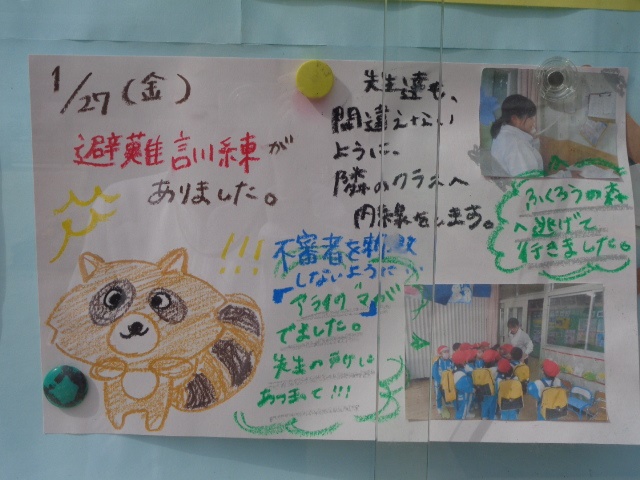 1/27(金)
避難訓練が
ありました。
先生達も、
間違えない
ように、
隣のクラスへ
内線をします。
ふくろうの森
へ逃げて
行きました。
不審者を刺激
しないように
「アライグマ」が
でました。
先生の所に
あつまって!!!